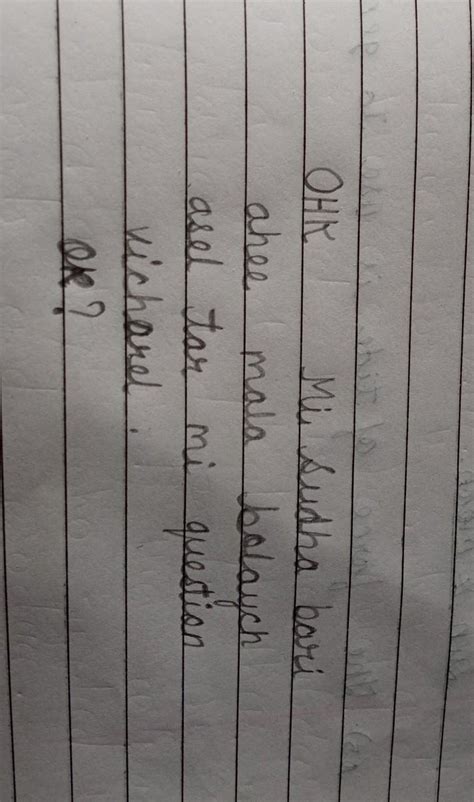 OHK Mi sudha bari
ahee mala bolaych
asel tar mi question
vicharel.
ok?